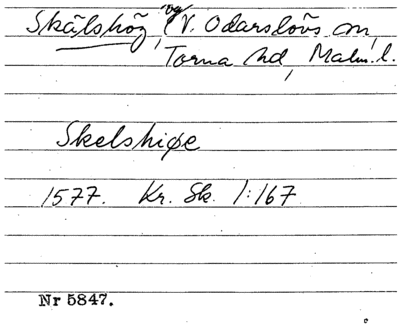 Skälshög, V. Odarslövs sn,
Torna hd, Malm. l.
Skelshiøe
1577. Kr. Sk. 1:167
Nr 5847.